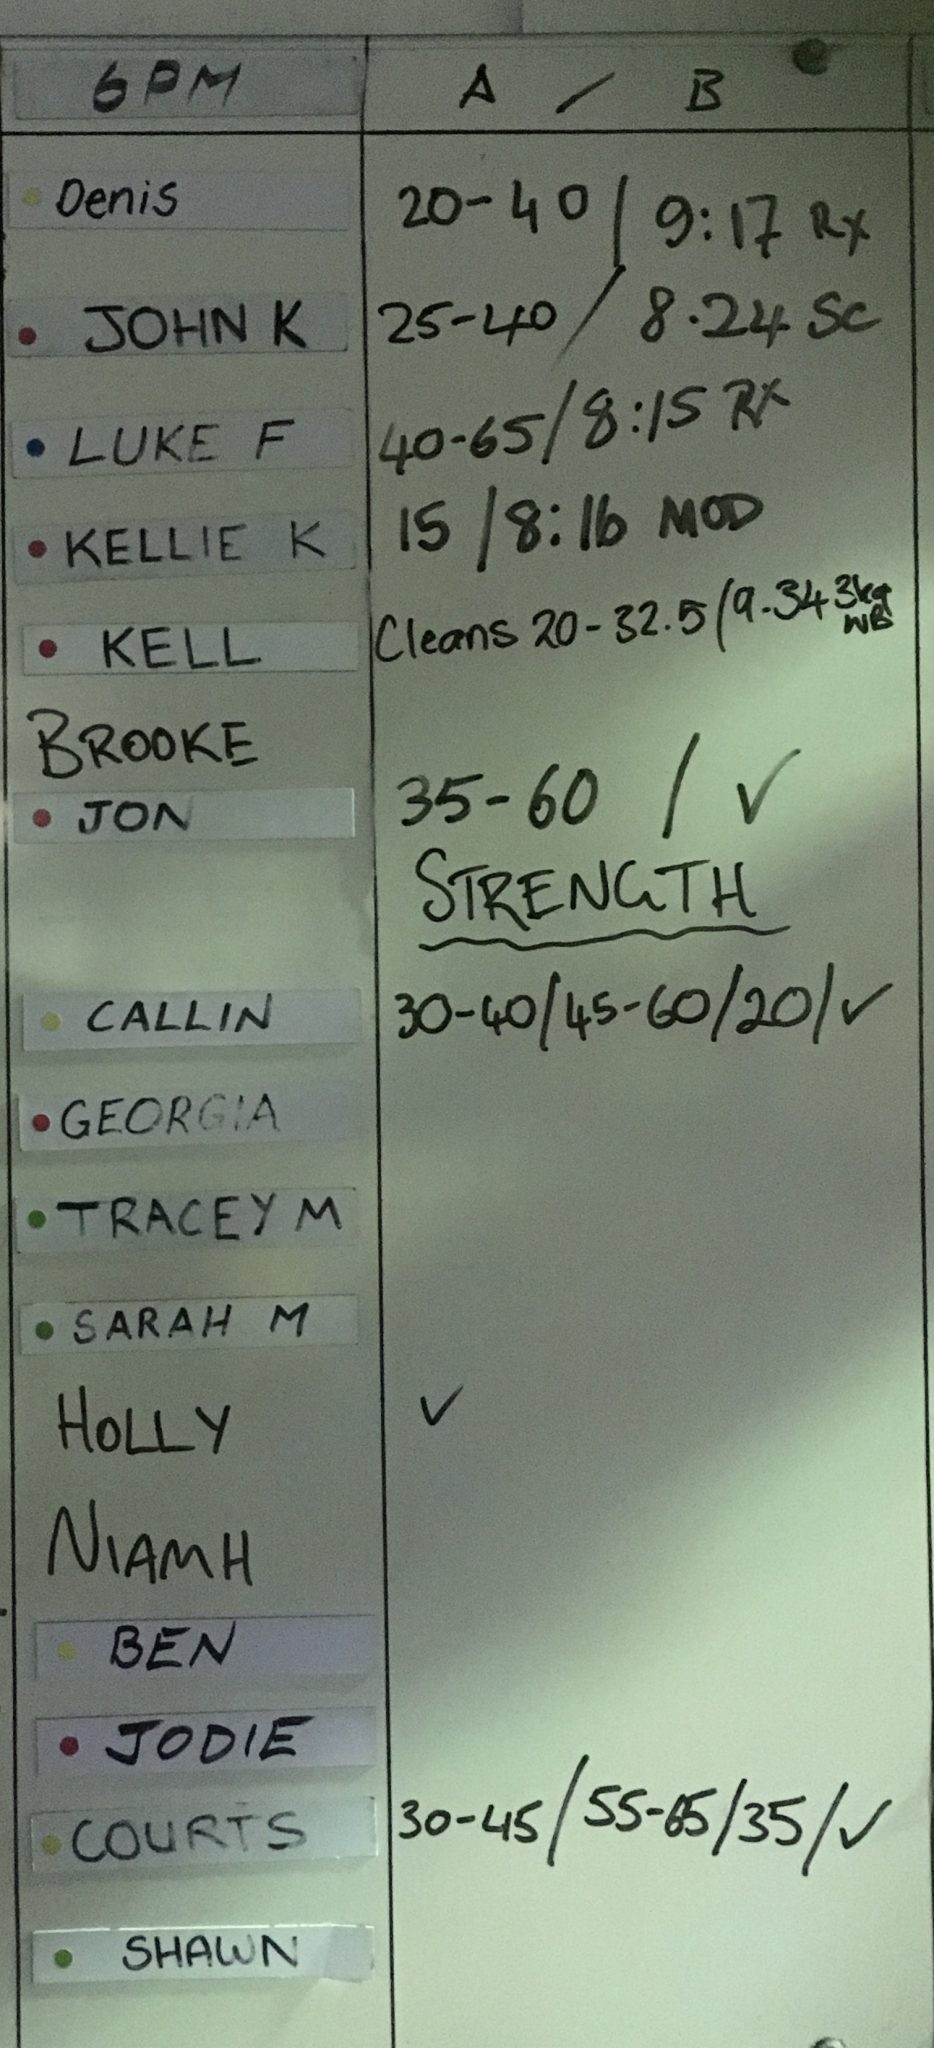 6PM A / B
Denis 20-40 / 9:17 Rx
JOHN K 25-40 / 8.24 Sc
LUKE F 40-65 / 8:15 Rx
KELLIE K 15 / 8:16 MOD
KELL Cleans 20-32.5 / 9.34 3kg WB
BROOKE
JON 35-60 / ✓
STRENGTH
CALLIN 30-40/45-60/20/✓
GEORGIA
TRACEY M
SARAH M
HOLLY ✓
NIAMH
BEN
JODIE
COURTS 30-45/55-65/35/✓
SHAWN